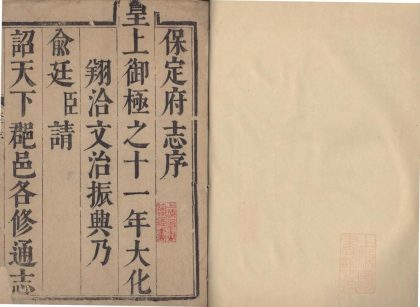 保定府志序
皇上御極之十一年大化
翔洽文治振興乃
俞廷臣請
詔天下郡邑各修通志